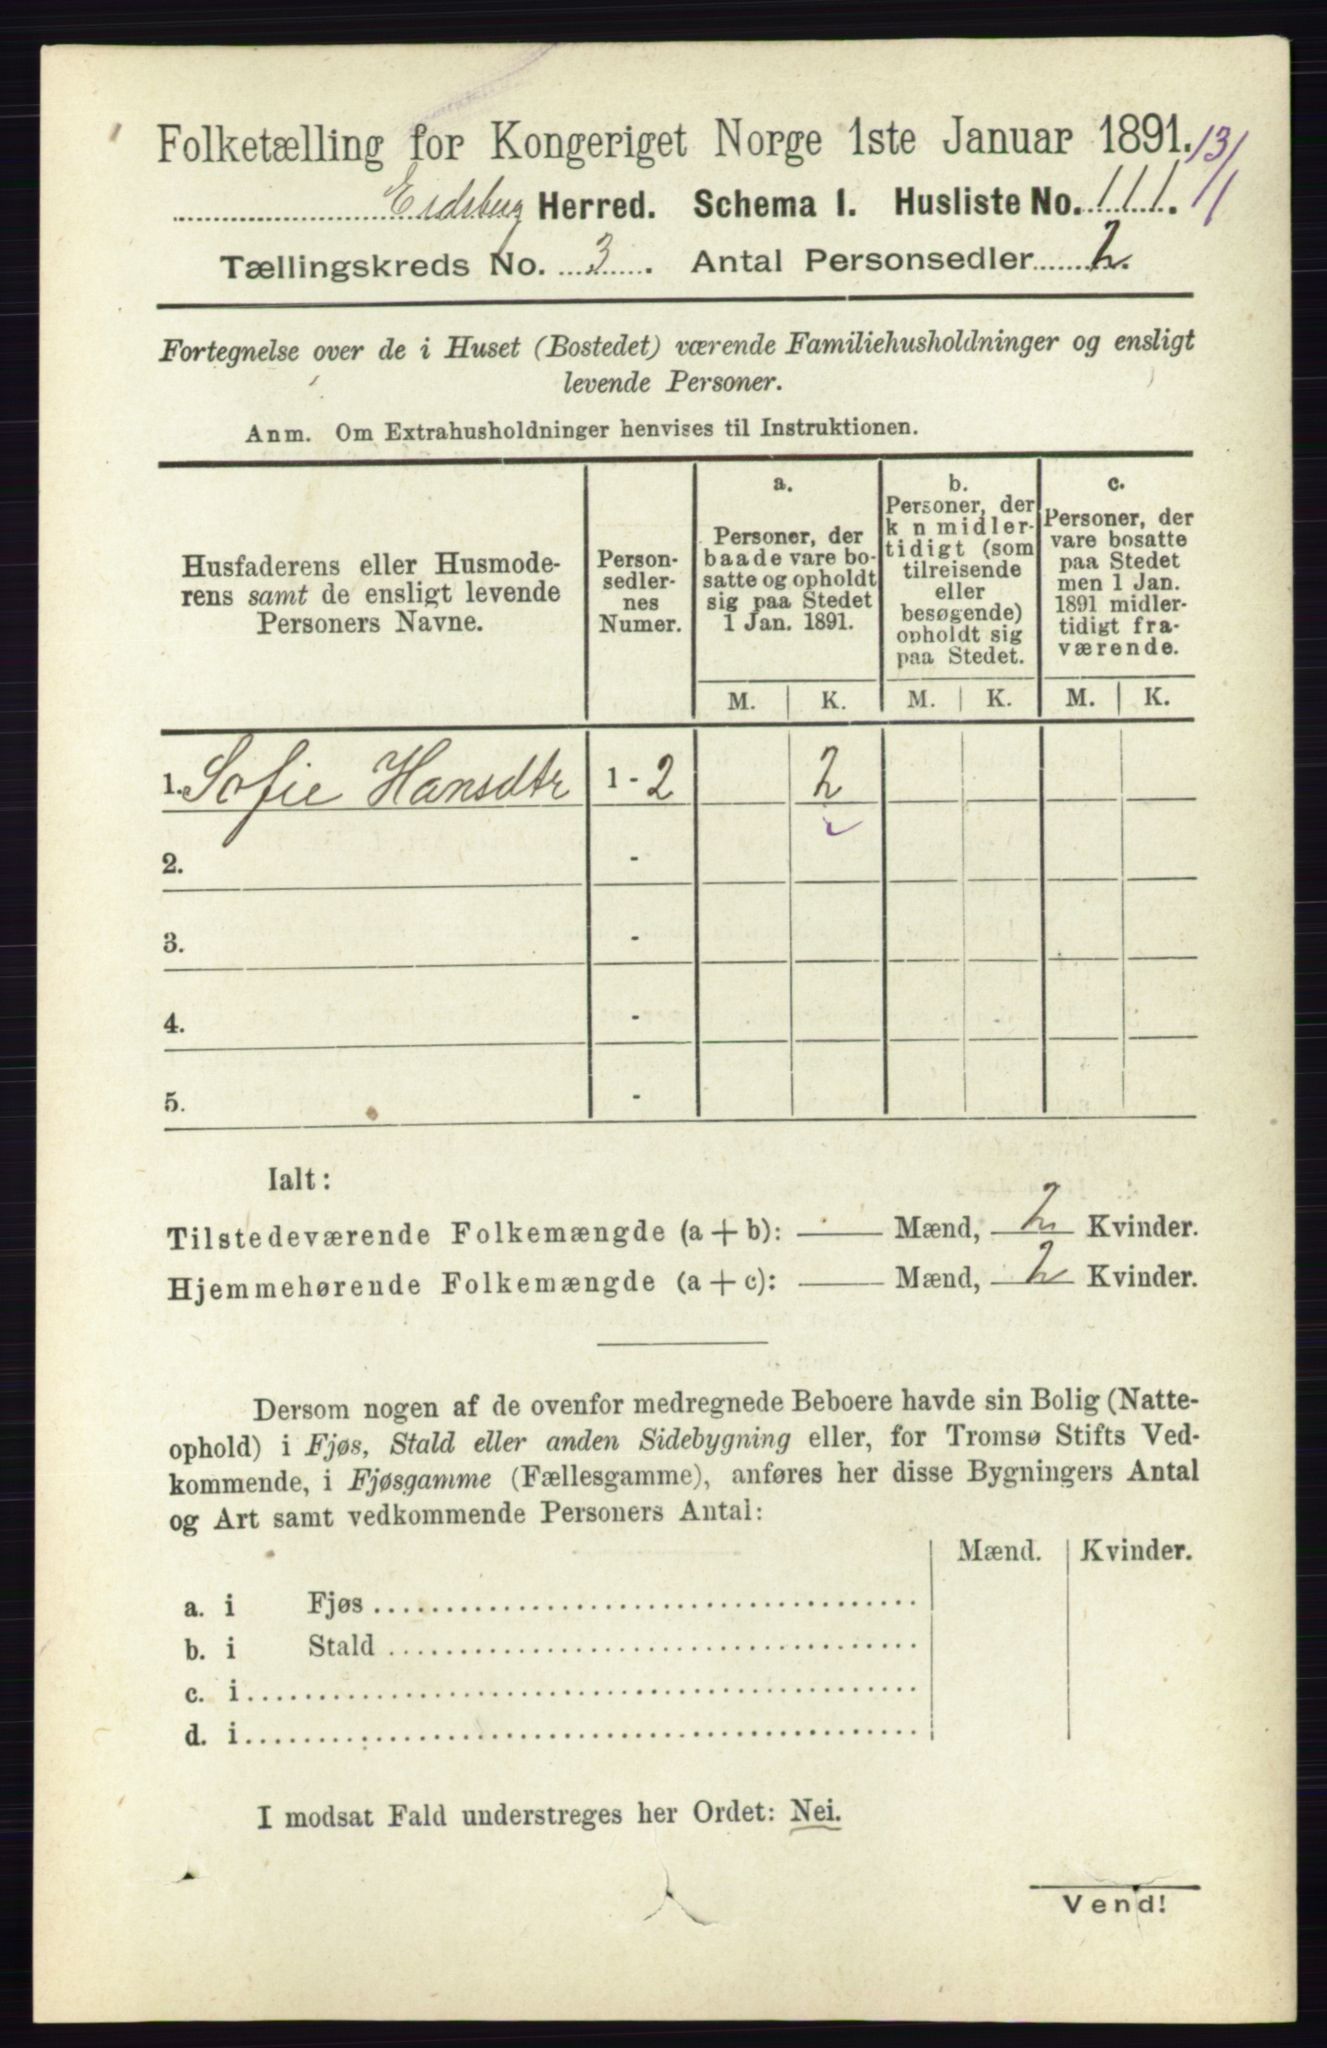 Folketælling for Kongeriget Norge 1ste Januar 1891. 13/1
Eidsberg Herred. Schema 1. Husliste No. 111.
Tællingskreds No. 3. Antal Personsedler 2.
Fortegnelse over de i Huset (Bostedet) værende Familiehusholdninger og ensligt
levende Personer.
Anm. Om Extrahusholdninger henvises til Instruktionen.
Husfaderens eller Husmode-
rens samt de ensligt levende
Personers Navne.
Person-
sedler-
nes
Numer.
a.
Personer, der
baade vare bo-
satte og opholdt
sig paa Stedet
1 Jan. 1891.
b.
Personer, der
k n midler-
tidigt (som
tilreisende
eller
besøgende)
opholdt sig
paa Stedet.
c.
Personer, der
vare bosatte
paa Stedet
men 1 Jan.
1891 midler-
tidigt fra-
værende.
M. K. M. K. M. K.
1. Sofie Hansdtr 1 - 2 2
2. -
3. -
4. -
5. -
Ialt:
Tilstedeværende Folkemængde (a + b): — Mænd, 2 Kvinder.
Hjemmehørende Folkemængde (a + c): — Mænd, 2 Kvinder.
Dersom nogen af de ovenfor medregnede Beboere havde sin Bolig (Natte-
ophold) i Fjøs, Stald eller anden Sidebygning eller, for Tromsø Stifts Ved-
kommende, i Fjøsgamme (Fællesgamme), anføres her disse Bygningers Antal
og Art samt vedkommende Personers Antal:
Mænd. Kvinder.
a. i Fjøs
b. i Stald
c. i
d. i
I modsat Fald understreges her Ordet: Nei.
Vend!